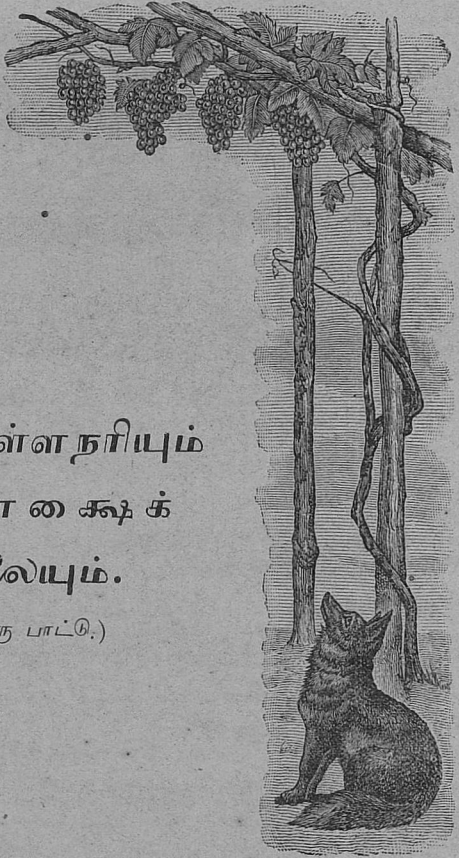 ள்ளநரியும்
க்ஷைக்
லையும்.
பாட்டு.)